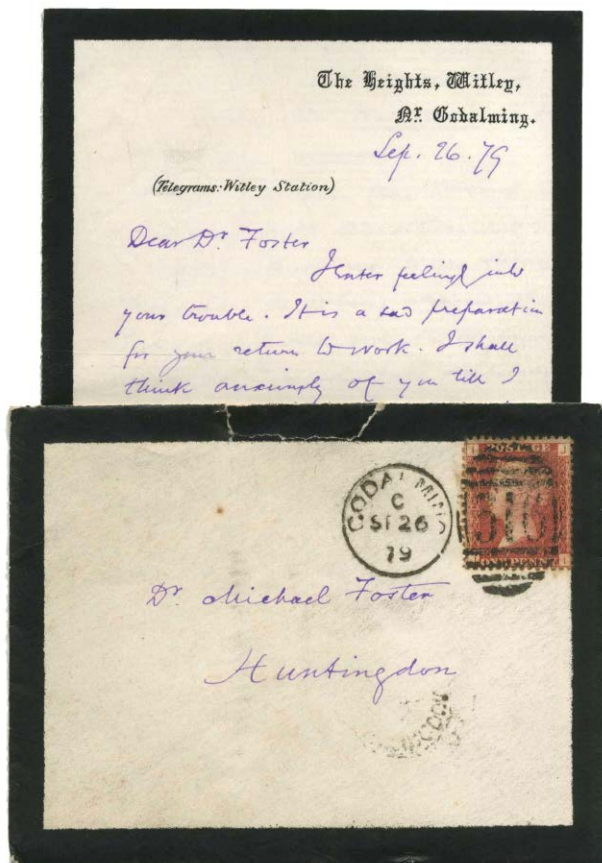 The Heights, Witley,
Nr. Godalming.
Sep. 26. 79
(Telegrams: Witley Station)
Dear Dr Foster
I enter feelingly into
your trouble. It is a sad preparation
for your return to work. I shall
think anxiously of you till I
GODALMING
C
SP 26
79
POSTAGE
ONE PENNY
Dr. Michael Foster
Huntingdon